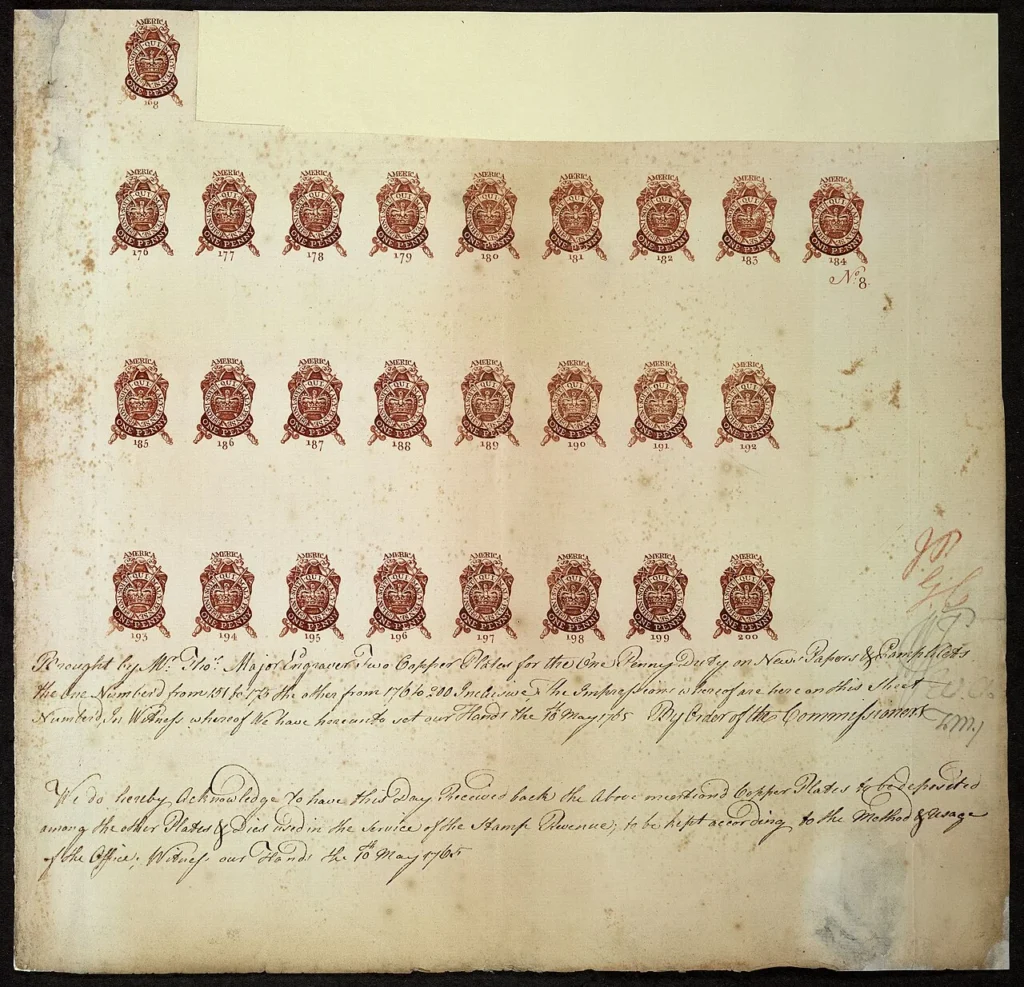 AMERICA
HONI SOIT QUI MAL Y PENSE
ONE PENNY
168
AMERICA AMERICA AMERICA AMERICA AMERICA AMERICA AMERICA AMERICA AMERICA
ONE PENNY ONE PENNY ONE PENNY ONE PENNY ONE PENNY ONE PENNY ONE PENNY ONE PENNY ONE PENNY
176 177 178 179 180 181 182 183 184
No. 8.
AMERICA AMERICA AMERICA AMERICA AMERICA AMERICA AMERICA AMERICA
ONE PENNY ONE PENNY ONE PENNY ONE PENNY ONE PENNY ONE PENNY ONE PENNY ONE PENNY
185 186 187 188 189 190 191 192
AMERICA AMERICA AMERICA AMERICA AMERICA AMERICA AMERICA AMERICA
ONE PENNY ONE PENNY ONE PENNY ONE PENNY ONE PENNY ONE PENNY ONE PENNY ONE PENNY
193 194 195 196 197 198 199 200
Brought by Mr. Thos. Major Engraver Two Copper Plates for the One Penny Duty on News Papers & Pamphlets
the one Numberd from 151 to 175 the other from 176 to 200 Inclusive, the Impressions whereof are here on this Sheet
Numberd In Witness whereof We have hereunto set our Hands the 10th May 1765 By Order of the Commissioners
We do hereby Acknowledge to have this Day Received back the Above mentiond Copper Plates to be deposited
among the other Plates & Dies used in the Service of the Stamp Revenue; to be kept according to the Method & usage
of the Office; Witness our Hands the 10th May 1765